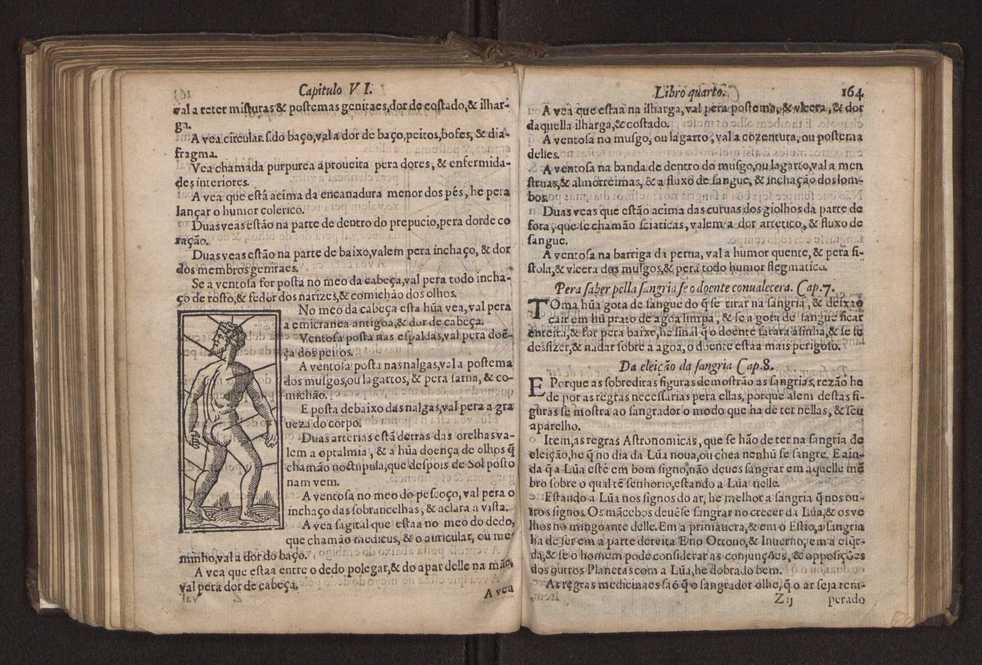 Capitulo VI.
val a reter misturas & postemas genitaes, dor de costado, & ilhar-
ga.
A vea circular do baço, val a dor de baço, peitos, bofes, & dia-
fragma.
Vea chamada purpurea aproueita pera dores, & enfermida-
des interiores.
A vea que està acima da encanadura menor dos pès, he pera
lançar o humor colerico.
Duas veas estão na parte de dentro do prepucio, pera dor de co
ração.
Duas veas estão na parte de baixo, valem pera inchaço, & dor
dos membros genitaes.
Se a ventosa for posta no meo da cabeça, val pera todo incha-
ço de rosto, & fedor dos narizes, & comichão dos olhos.
No meo da cabeça esta hũa vea, val pera
a emicranea antigoa, & dor de cabeça.
Ventosa posta nas espaldas, val pera doẽ
ça dos peitos.
A ventosa posta nas nalgas, val a postema
dos musgos, ou lagartos, & pera sarna, & co-
michão.
E posta debaixo das nalgas, val pera a gra
ueza do corpo.
Duas arterias estã detras das orelhas va-
lem a optalmia, & a hũa doença de olhos q̃
chamão noctupula, que despois de Sol posto
nam vem.
A ventosa no meo do pescoço, val pera o
inchaço das sobrancelhas, & aclara a vista.
A vea sagital que estaa no meo do dedo,
que chamão medicus, & o auricular, ou me
minho, val a dor do baço.
A vea que estaa entre o dedo polegar, & do apar delle na mão,
val pera dor de cabeça,
A vea
Libro quarto. 164
A vea que estaa na ilharga, val pera postema, & vlcera, & dor
daquella ilharga, & costado.
A ventosa no musgo, ou lagarto, val a cozentura, ou postema
delles.
A ventosa na banda de dentro do musgo, ou lagarto, val a men
struas, & almorreimas, & a fluxo de sangue, & inchação dos lom-
bos.
Duas veas que estão acima das curuas dos giolhos da parte de
fora, que se chamão sciaticas, valem a dor artetico, & fluxo de
sangue.
A ventosa na barriga da perna, val a humor quente, & pera fi-
stola, & vlcera dos musgos, & pera todo humor flegmatica.
Pera saber pella sangria se o doente conualecera. Cap. 7.
TOma hũa gota de sangue do q̃ se tirar na sangria, & deixao
cair em hũ prato de agoa limpa, & se a gota de sangue ficar
enteira, & for pera baixo, he sinal q̃ o doente sarara asinha, & se se
desfizer, & nadar sobre a agoa, o doente estaa mais perigoso.
Da eleição da sangria Cap. 8.
E Porque as sobreditas figuras demostrão as sangrias, rezão he
de por as regras necessarias pera ellas, porque alem destas fi-
guras se mostra ao sangrador o modo que ha de ter nellas, & seu
aparelho.
Item, as regras Astronomicas, que se hão de ter na sangria de
eleição, he q̃ no dia da Lũa noua, ou chea nenhũ se sangre. E ain-
da q̃ a Lũa estè em bom signo, não deues sangrar em aquelle mẽ
bro sobre o qual tẽ senhorio, estando a Lũa nelle.
Estando a Lũa nos signos do ar, he melhor a sangria q̃ nos ou-
tros signos. Os mãcebos deuẽ se sangrar no crecer da Lũa, & os ve
lhos no mingoante delle. Em a primauera, & em o Estio, a sangria
ha de ser em a parte dereita E no Otono, & Inuerno, em a esq̃r-
da, & se o homem pode considerar as conjunções, & opposições
dos outros Planetas com a Lũa, he dobrado bem.
As regras medicinaes sã ó q̃ o sangrador olhe, q̃ o ar seja tem-
Z ij perado